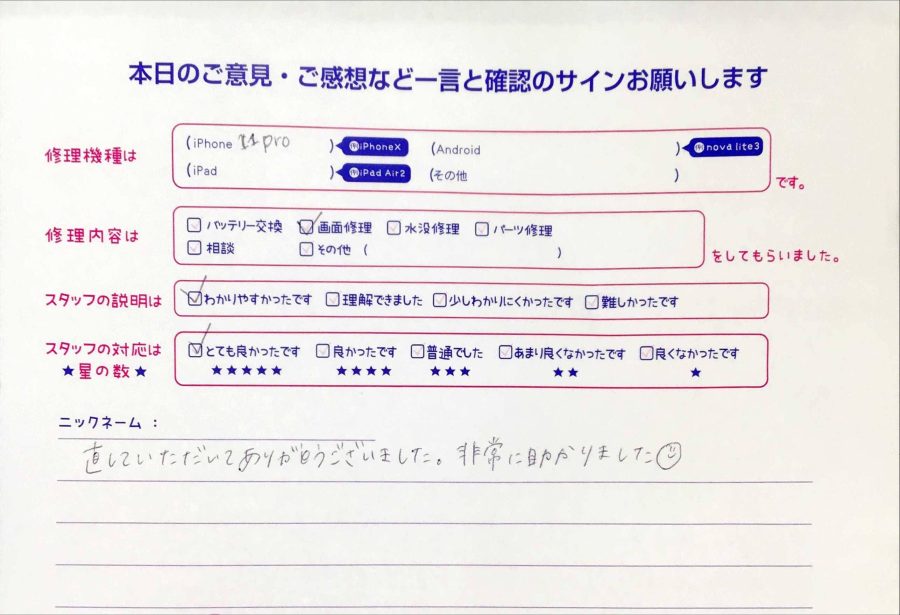 本日のご意見・ご感想など一言と確認のサインお願いします
修理機種は (iPhone 11 pro ) iPhoneX (Android ) nova lite3
(iPad ) iPad Air2 (その他 ) です。
修理内容は バッテリー交換 画面修理 水没修理 パーツ修理
相談 その他 ( ) をしてもらいました。
スタッフの説明は わかりやすかったです 理解できました 少しわかりにくかったです 難しかったです
スタッフの対応は とても良かったです 良かったです 普通でした あまり良くなかったです 良くなかったです
★星の数★ ★★★★★ ★★★★ ★★★ ★★ ★
ニックネーム :
直していただいてありがとうございました。非常に助かりました